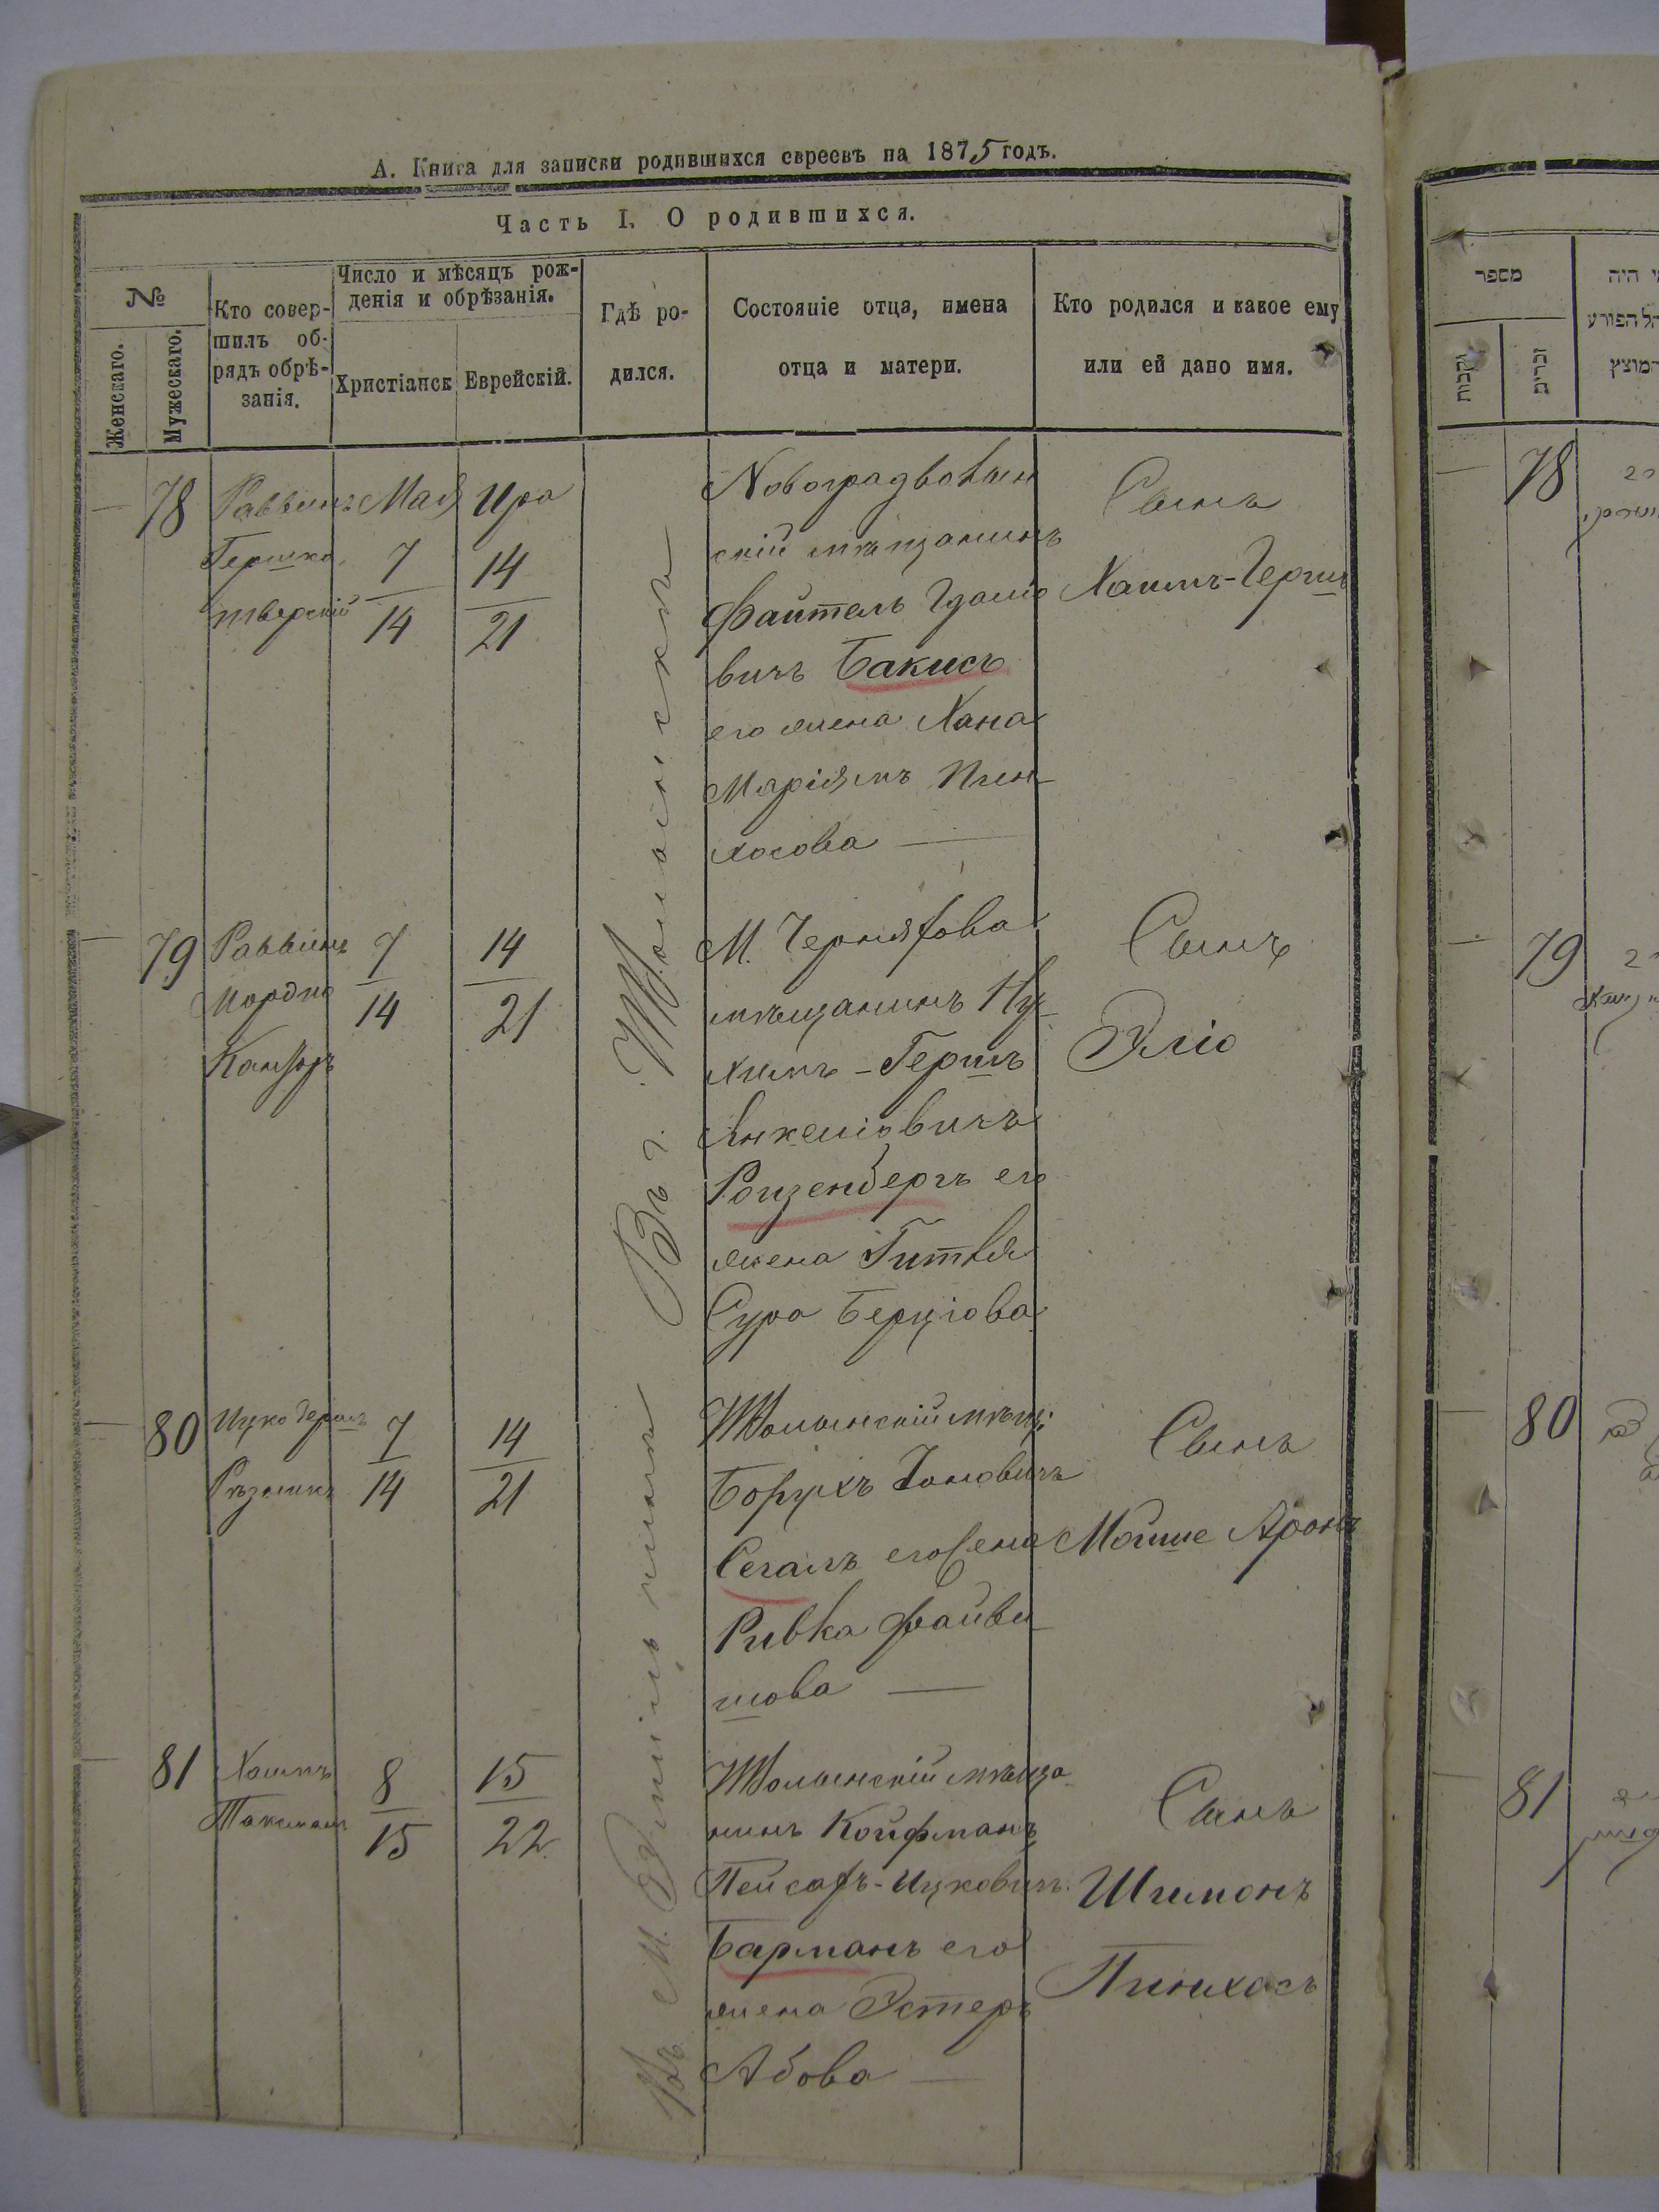 А. Книга для записки родившихся евреевъ на 1875 годъ.
Часть I. О родившихся.
№
Женскаго.
Мужескаго.
Кто совер-
шилъ об-
рядъ обрѣ-
занія.
Число и мѣсяцъ рож-
денія и обрѣзанія.
Христіанск
Еврейскій.
Гдѣ ро-
дился.
Состояніе отца, имена
отца и матери.
Кто родился и какое ему
или ей дано имя.
— 78
Раввинъ
Гершко
тверскій
Мая
7
14
Ира
14
21
Новоградволын
скій мѣщанинъ
Файтель Гдаліо
вичъ Бакисъ
его жена Хана
Маріямъ Пин-
хосова —
Сынъ
Хаимъ-Герш
— 79
Раввинъ
Мордко
Канторъ
7
14
14
21
М. Черняхова
мѣщанинъ Ну-
химъ-Гершъ
Янкеліовичъ
Розенбергъ его
жена Гитля
Сура Берціова
Сынъ
Эліо
— 80
Ицко Гершъ
Рѣзникъ
7
14
14
21
Житомирскій мѣщ:
Борухъ
Сегалъ его жена
Ривка Файви-
шова —
Сынъ
Мойше Аронъ
— 81
Хаимъ
Таксманъ
8
15
15
22
нинъ Койфманъ
Пейсахъ-Ицковичъ
Барманъ его
жена Эстеръ
Абова —
Сынъ
Шимонъ
Пинхасъ
Въ г.
מספר
נקבות
זכרים
המוצץ
— 78
— 79
— 80
— 81